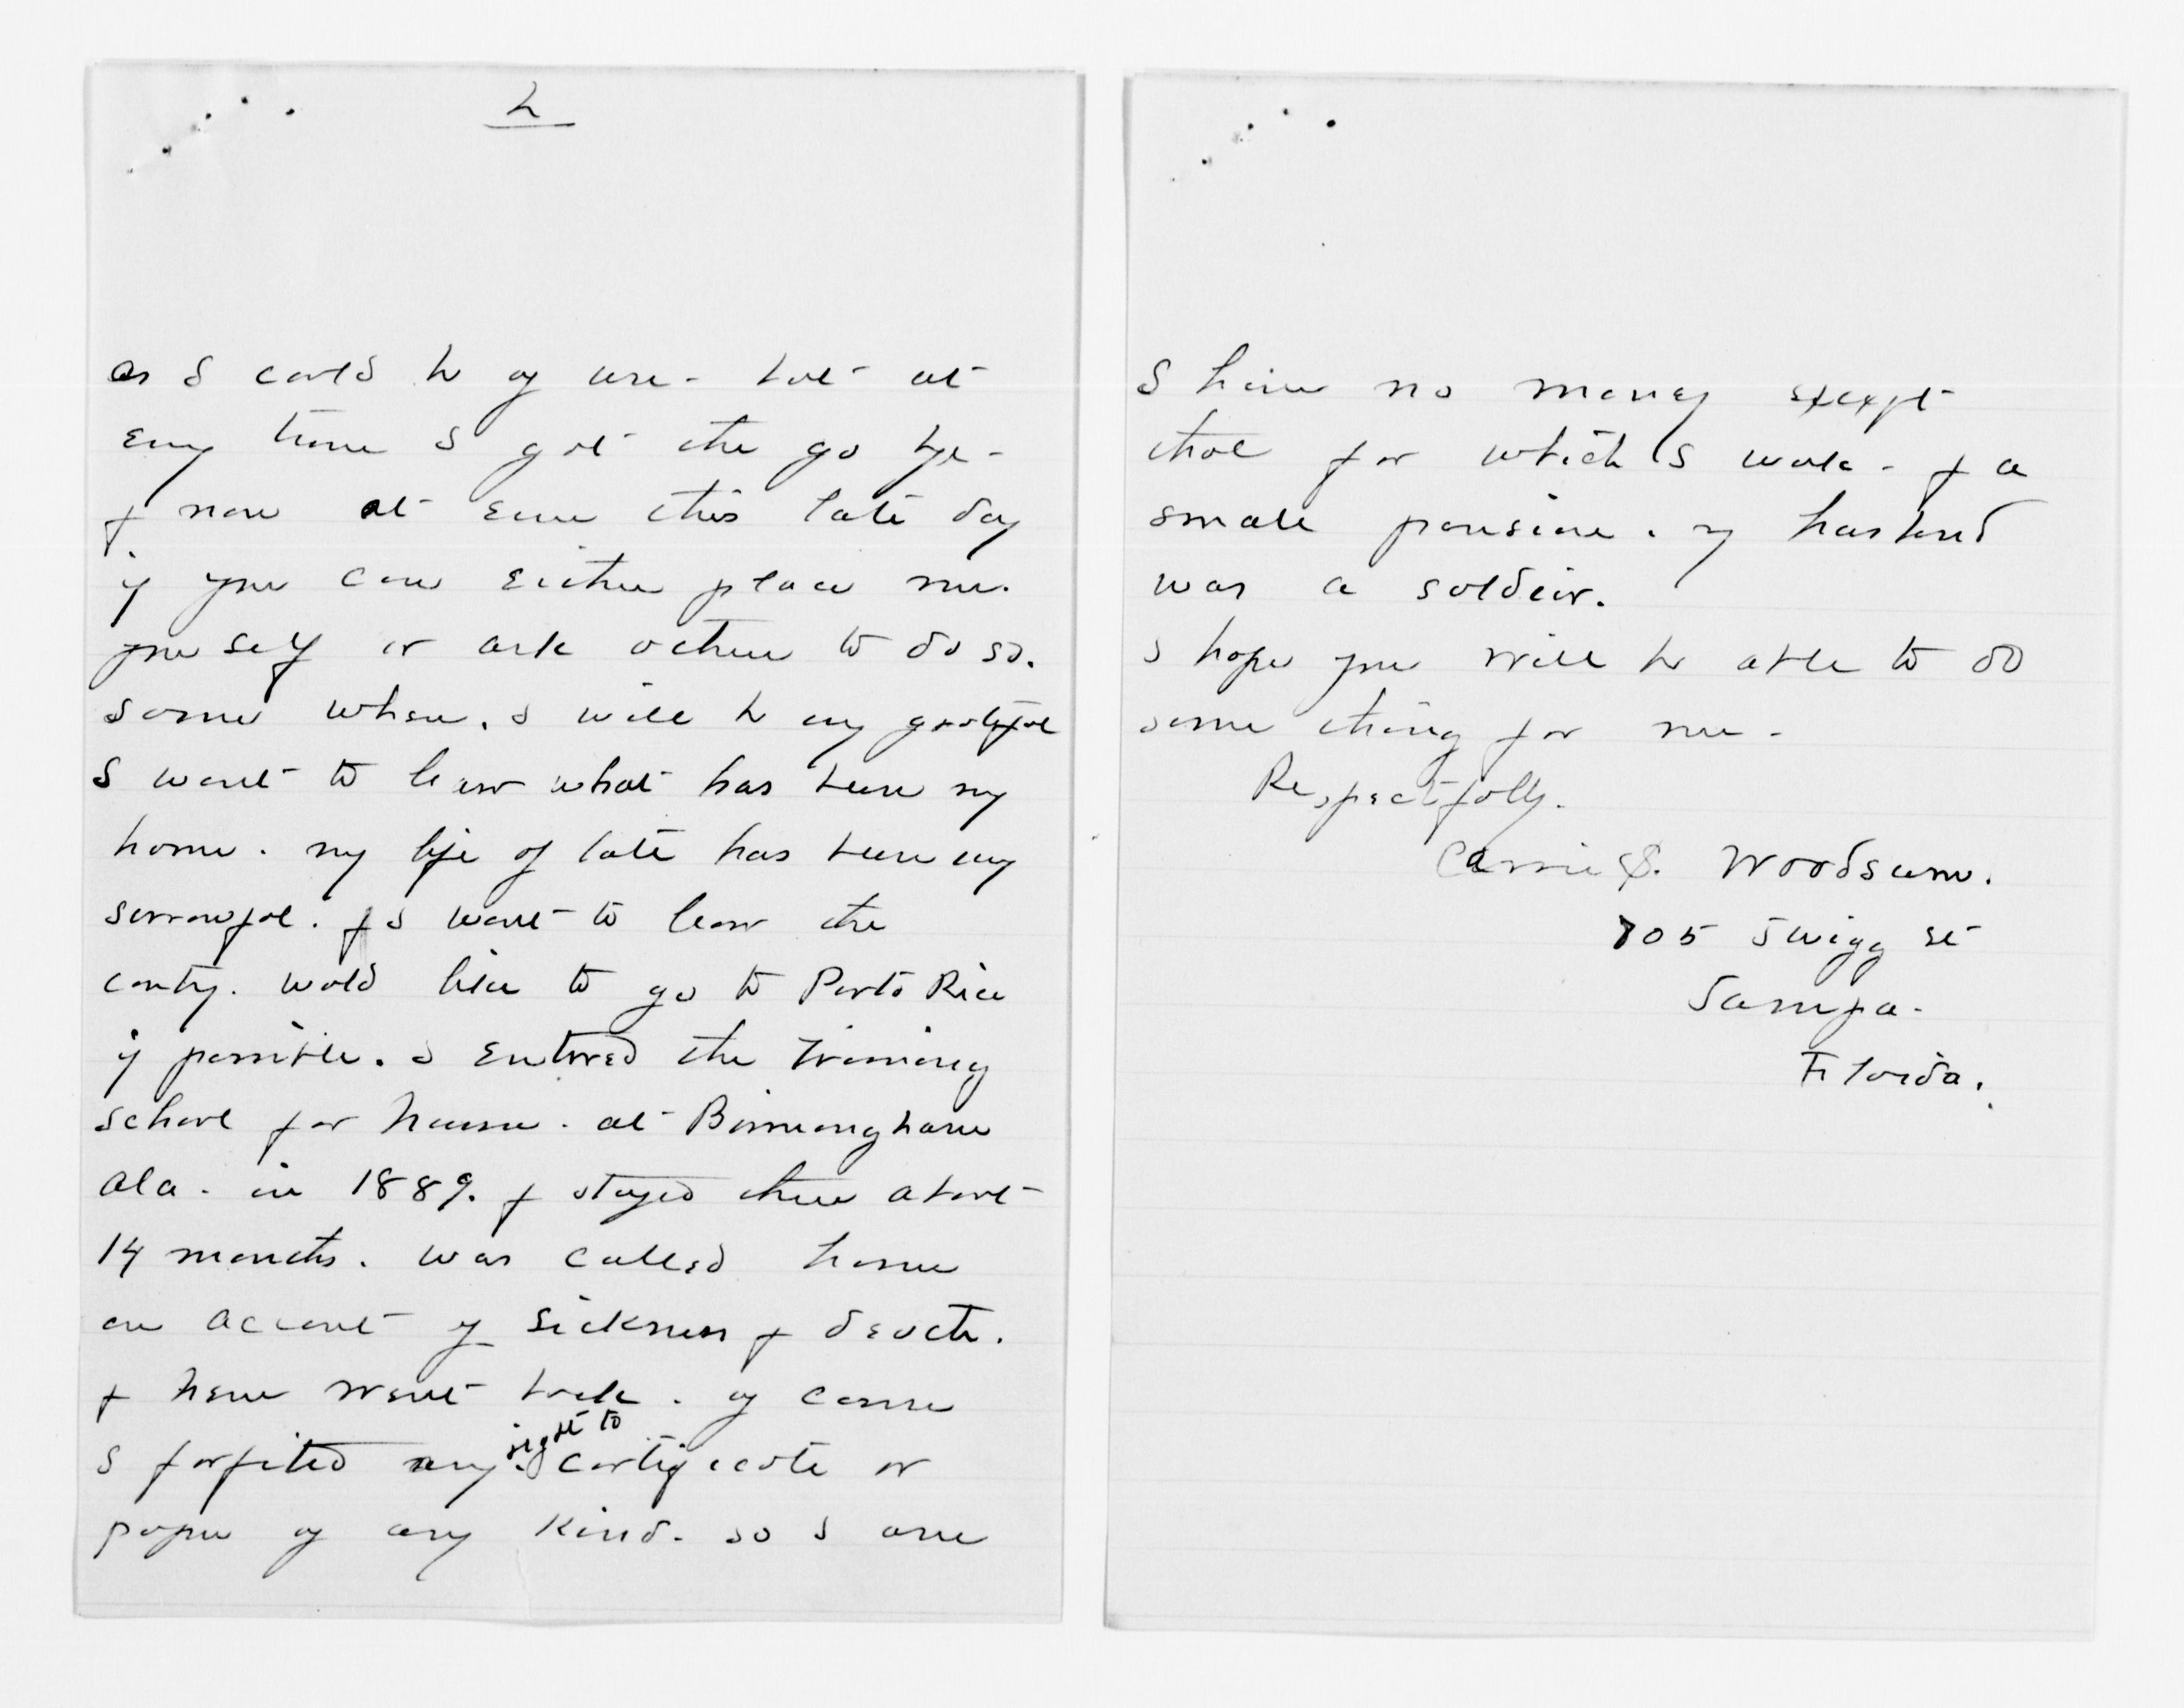 2
as I could be of use - but at
evry time I got the go bye -
& now at even this late day
if you can either place me.
your self or ask other to do so.
some where. I will be very gratefull
I want to leave what has been my
home. my life of late has been very
sorrowful. & I want to leave the
contry. wold like to go to Porto Rico
if possible. I entered the Training
school for Nurse. at Birmingham
Ala. in 1889. & stayed there about
14 months. was called home
on account of sickness & death.
& never went back. of corse
I forfited my right to certificate or
paper of any kind. so I am
I have no money except
that for which I work - & a
small pension. my husband
was a soldier.
I hope you will be able to do
some thing for me -
Respectfolly.
Carrie S. Woodsum.
805 Twigg St
Tampa.
Florida.